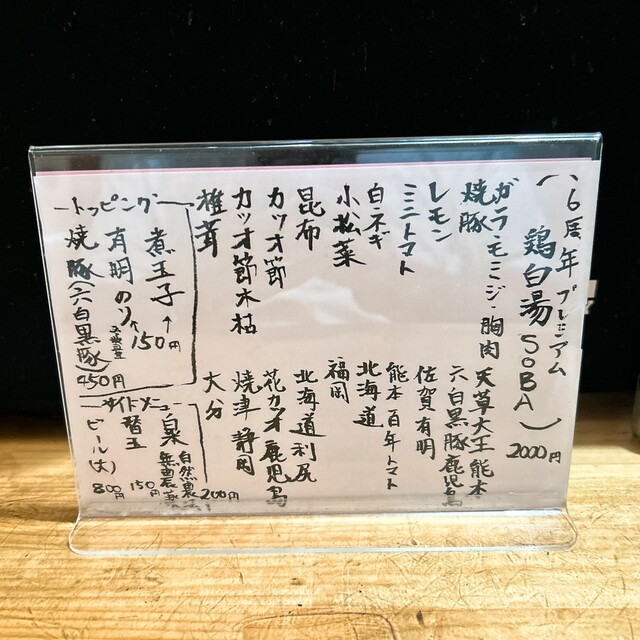 6周年 プレミアム
(鶏白湯 SOBA) 2000円
ガラ・モミジ 胸肉 天草大王 熊本
焼豚 六白黒豚 鹿児島
レモン 佐賀有明
ミニトマト 熊本 百年トマト
白ネギ 北海道
小松菜 福岡
昆布 北海道利尻
カツオ節 花カツオ 鹿児島
カツオ節 本枯 焼津 静岡
椎茸 大分
トッピング
煮玉子 150円
有明のり
焼豚(六白黒豚) 450円
サイドメニュー
白米 自然農法 無農薬 200円
替玉 150円
ビール(大) 800円